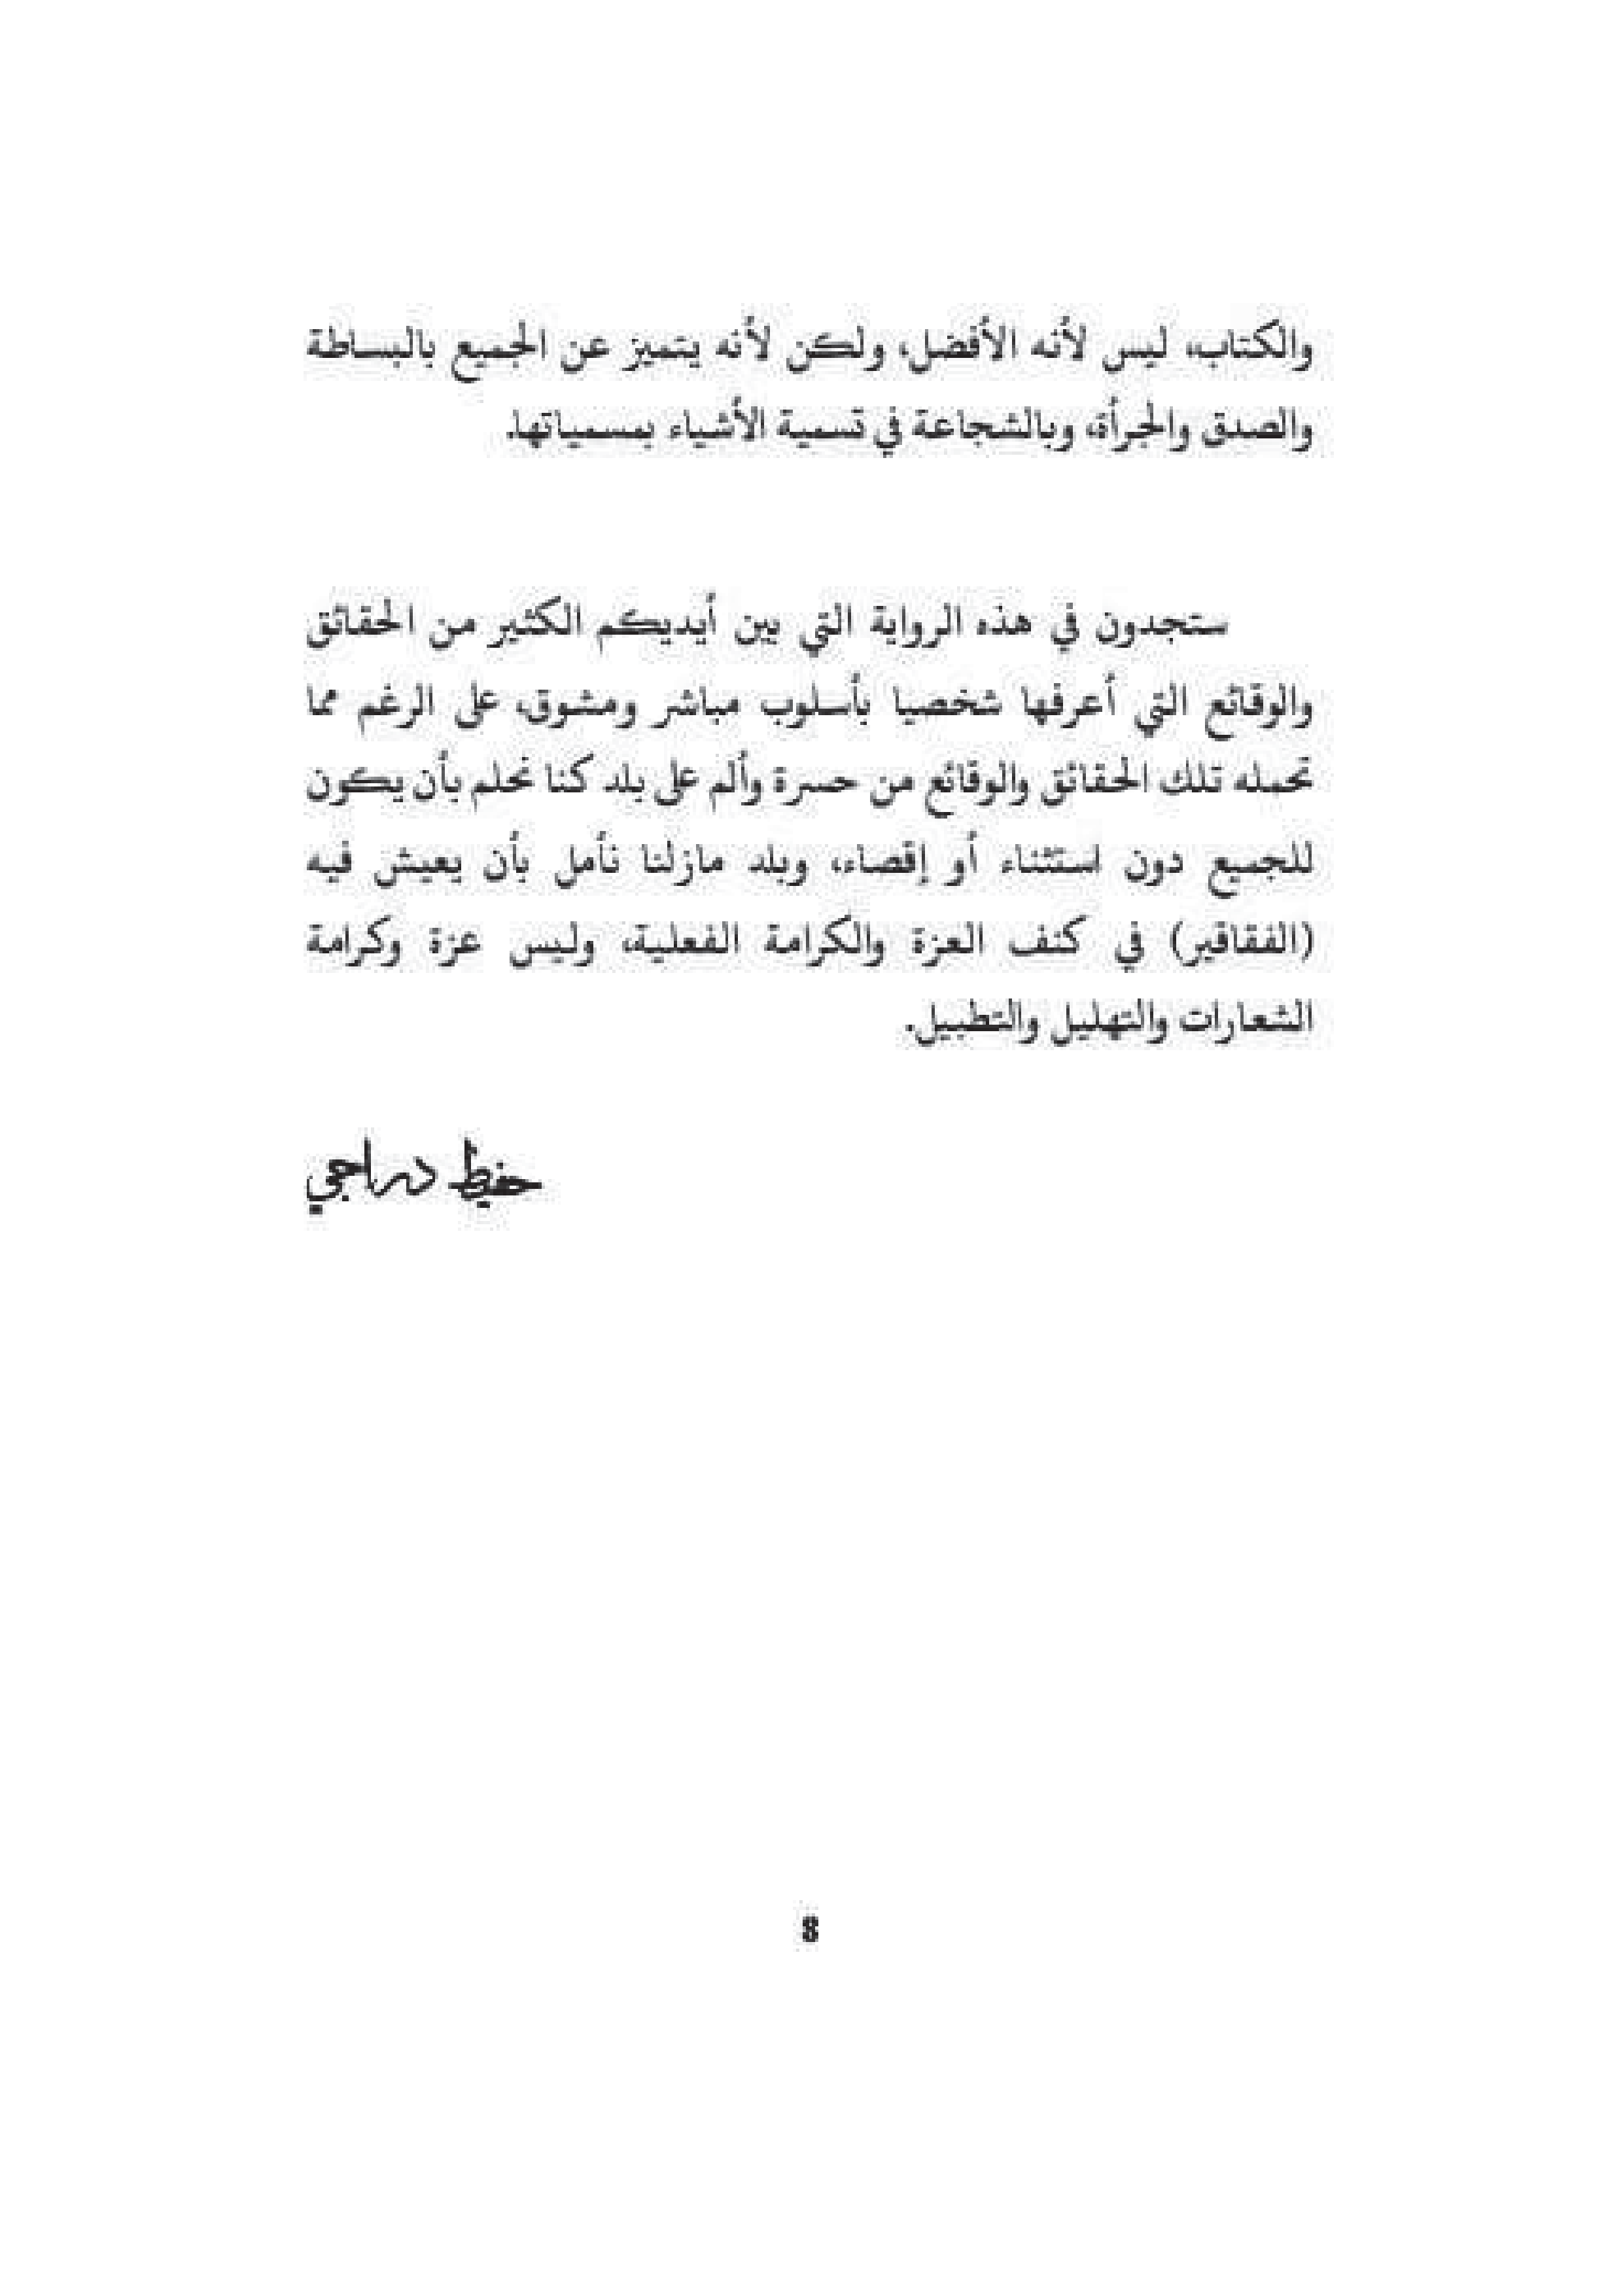 والكتاب، ليس لأنه الأفضل، ولكن لأنه يتميز عن الجميع بالبساطة
والصدق والجرأة، وبالشجاعة في تسمية الأشياء بمسمياتها.
ستجدون في هذه الرواية التي بين أيديكم الكثير من الحقائق
والوقائع التي أعرفها شخصيا بأسلوب مباشر ومشوق، على الرغم مما
تحمله تلك الحقائق والوقائع من حسرة وألم على بلد كنا نحلم بأن يكون
للجميع دون استثناء أو إقصاء، وبلد مازلنا نأمل بأن يعيش فيه
(الفقاقير) في كنف العزة والكرامة الفعلية، وليس عزة وكرامة
الشعارات والتهليل والتطبيل.
حفيظ دراجي
8